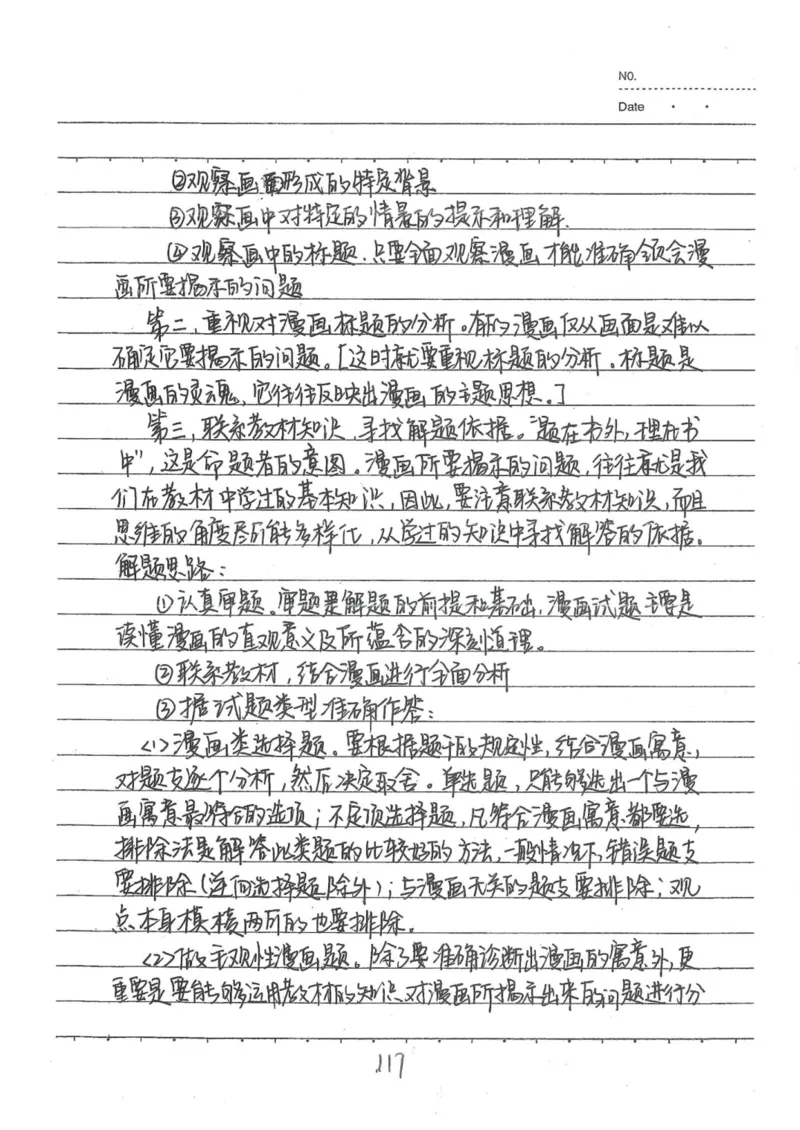 NO.
Date
②观察画面形成的特定背景
③观察画中对特定的情景的提示和理解.
④观察画中的标题.只要全面观察漫画才能准确领会漫
画所要揭示的问题
第二,重视对漫画标题的分析。有的漫画仅从画面是难以
确定它要揭示的问题。[这时就要重视标题的分析。标题是
漫画的灵魂,它往往反映出漫画的主题思想。]
第三,联系教材知识,寻找解题依据。"题在书外,理在书
中",这是命题者的意图。漫画所要揭示的问题,往往就是我
们在教材中学过的基本知识,因此,要注意联系教材知识,而且
思维的角度尽所能多样化,从学过的知识中寻找解答的依据。
解题思路:
①认真审题。审题是解题的前提和基础,漫画试题主要是
读懂漫画的直观意义及所蕴含的深刻道理。
②联系教材,结合漫画进行全面分析
③据试题类型准确作答:
<1>漫画类选择题。要根据题干的规定性,结合漫画寓意,
对题支逐个分析,然后决定取舍。单选题,只能够选出一个与漫
画寓意最符合的选项;不定项选择题,凡符合漫画寓意都要选,
排除法是解答此类题的比较好的方法,一般情况下,错误题支
要排除(逆向选择题除外);与漫画无关的题支要排除;观
点本身模棱两可的也要排除。
<2>做主观性漫画题。除了要准确诊断出漫画的寓意外,更
重要是要能够运用教材的知识对漫画所揭示出来的问题进行分
117